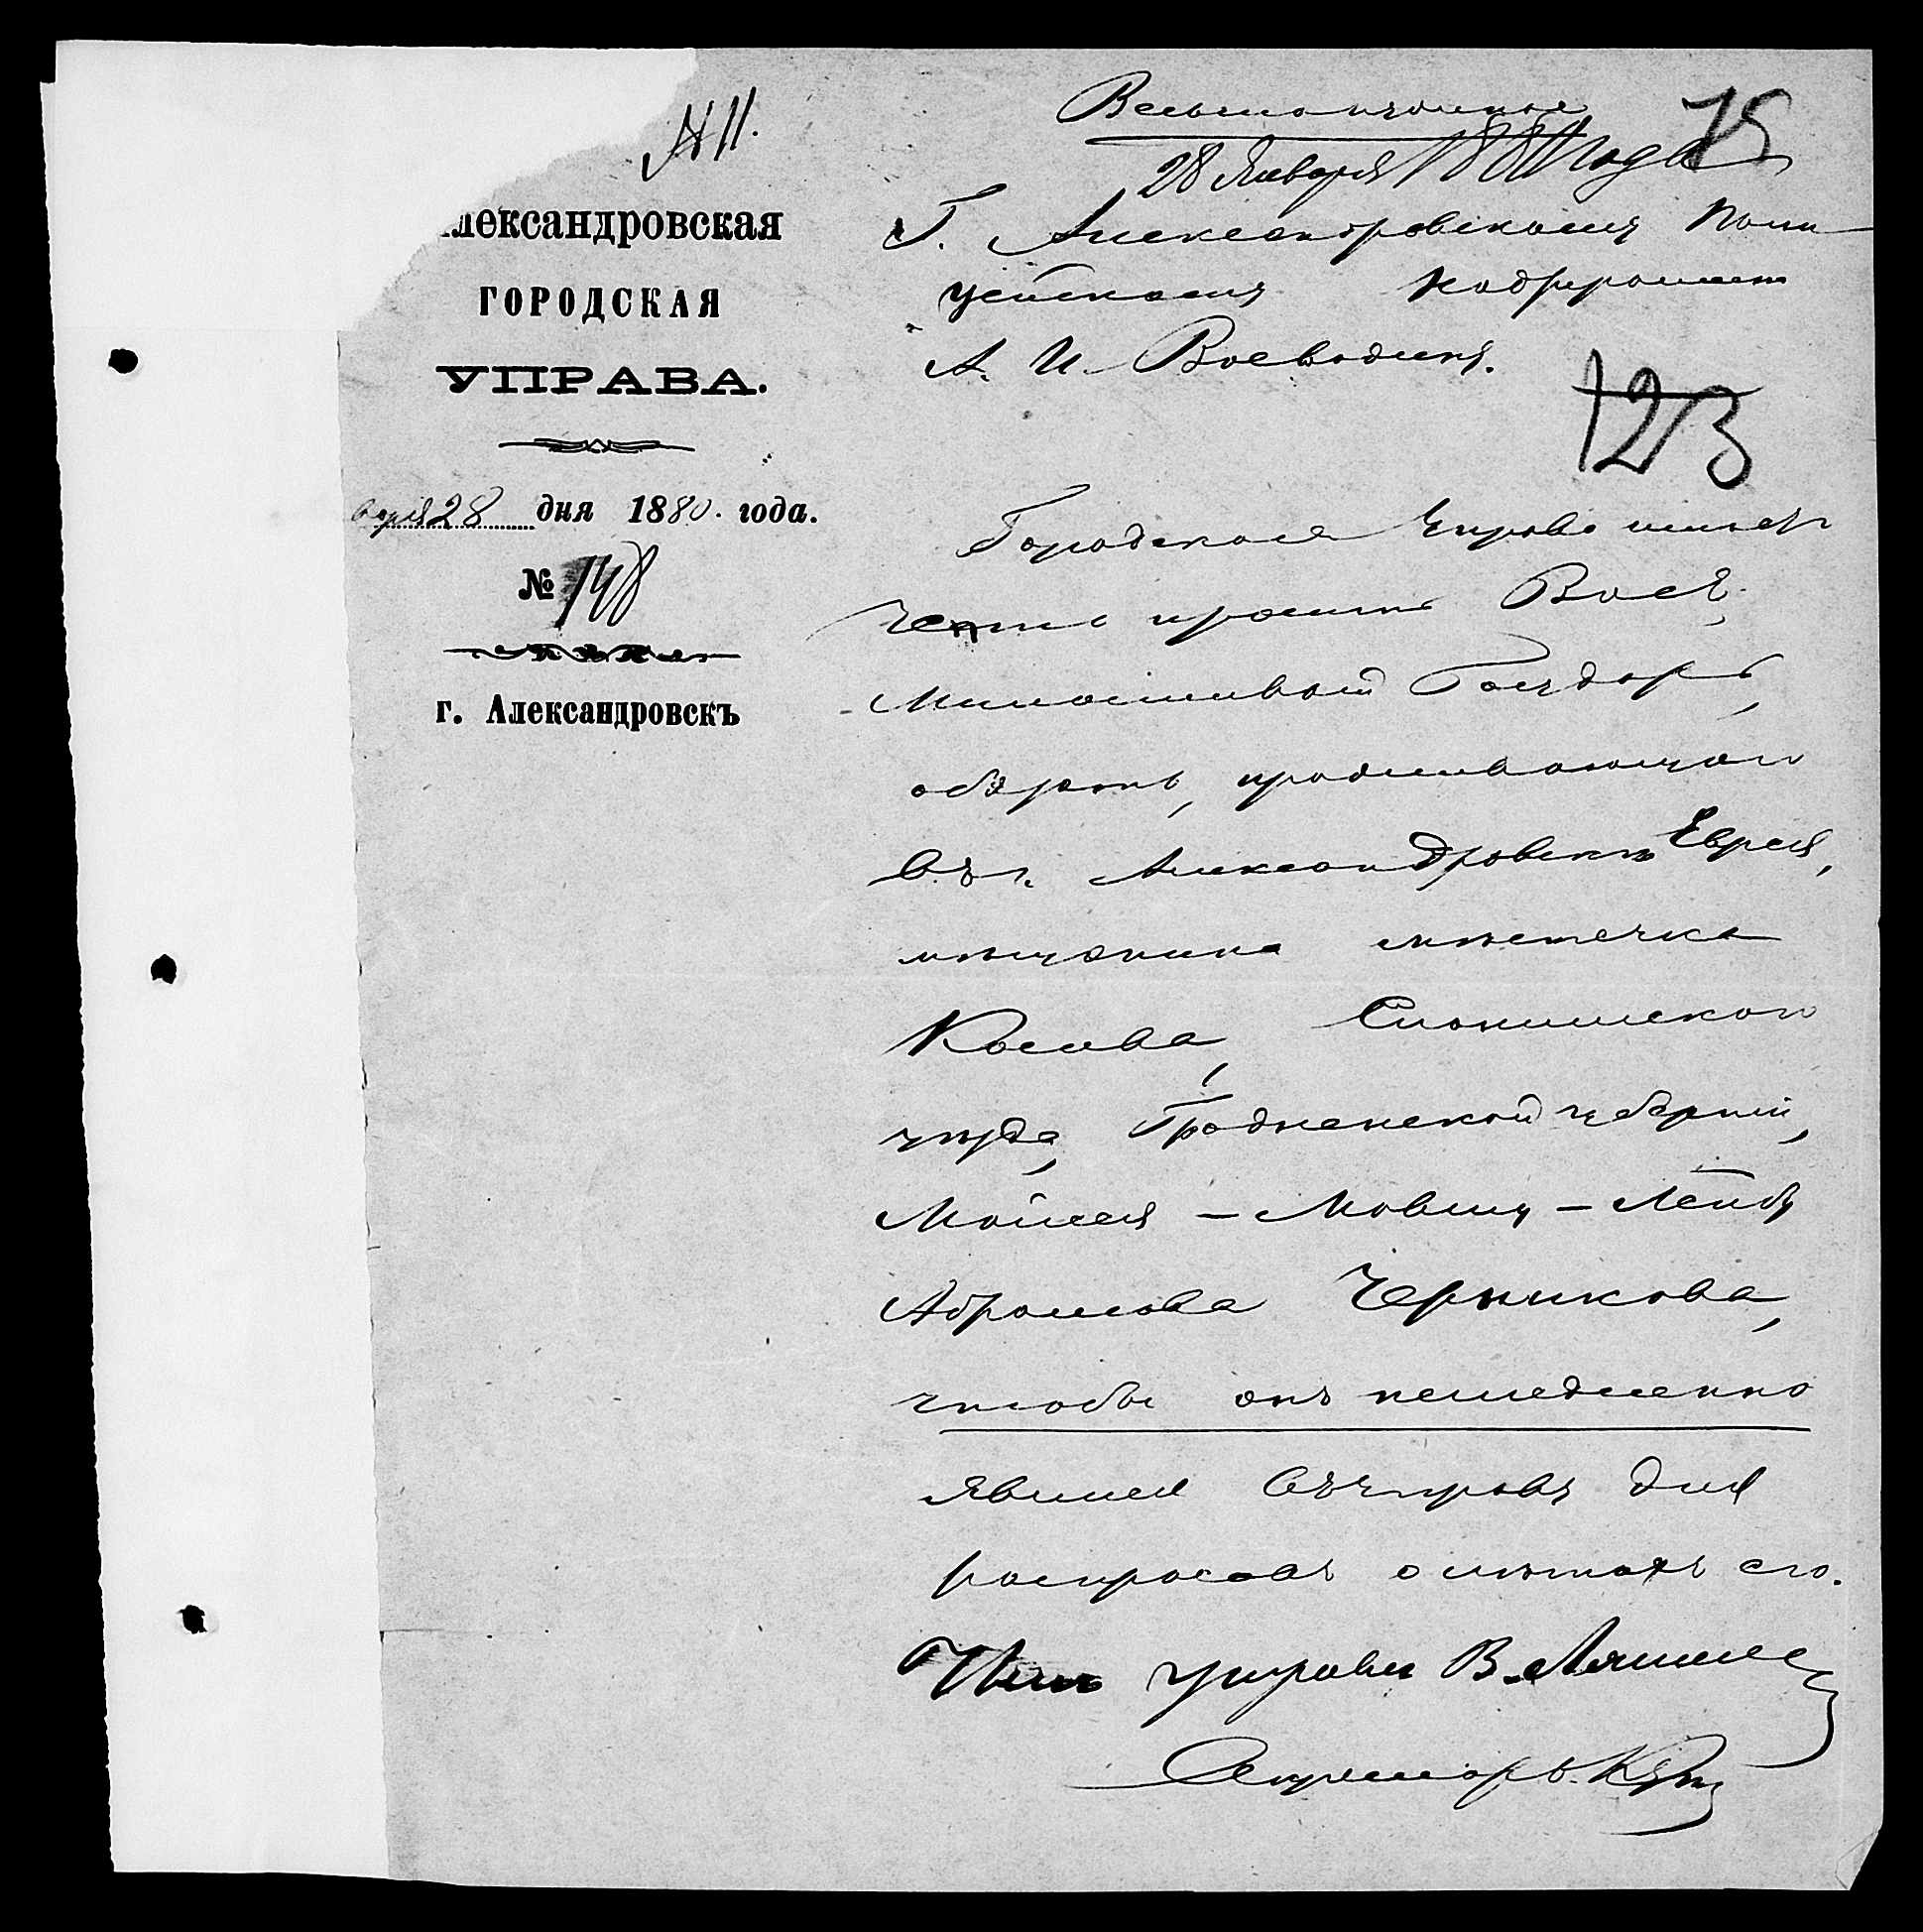 № 11.
лександровская
ГОРОДСКАЯ
УПРАВА.
варя 28 дня 1880. года.
№ 148
г. Александровскъ
75
28 Января 1880 года
Г. Александровскому Поли
цейскому Надзирателю
А. И. Воеводину.
123
Городская Управа имѣетъ
честь просить Васъ,
Милостивый Государь,
обязать, проживающаго
въ г. Александровскѣ Еврея,
мѣщанина мѣстечка
Косова, Слонимскаго
уѣзда, Гродненской губерніи,
Мойсея - Мовшу - Лейбу
Абрамова Черникова,
чтобы онъ немедленно
явился въ Управу для
распросовъ о лѣтахъ его.
Члень управы В.
Секретарь